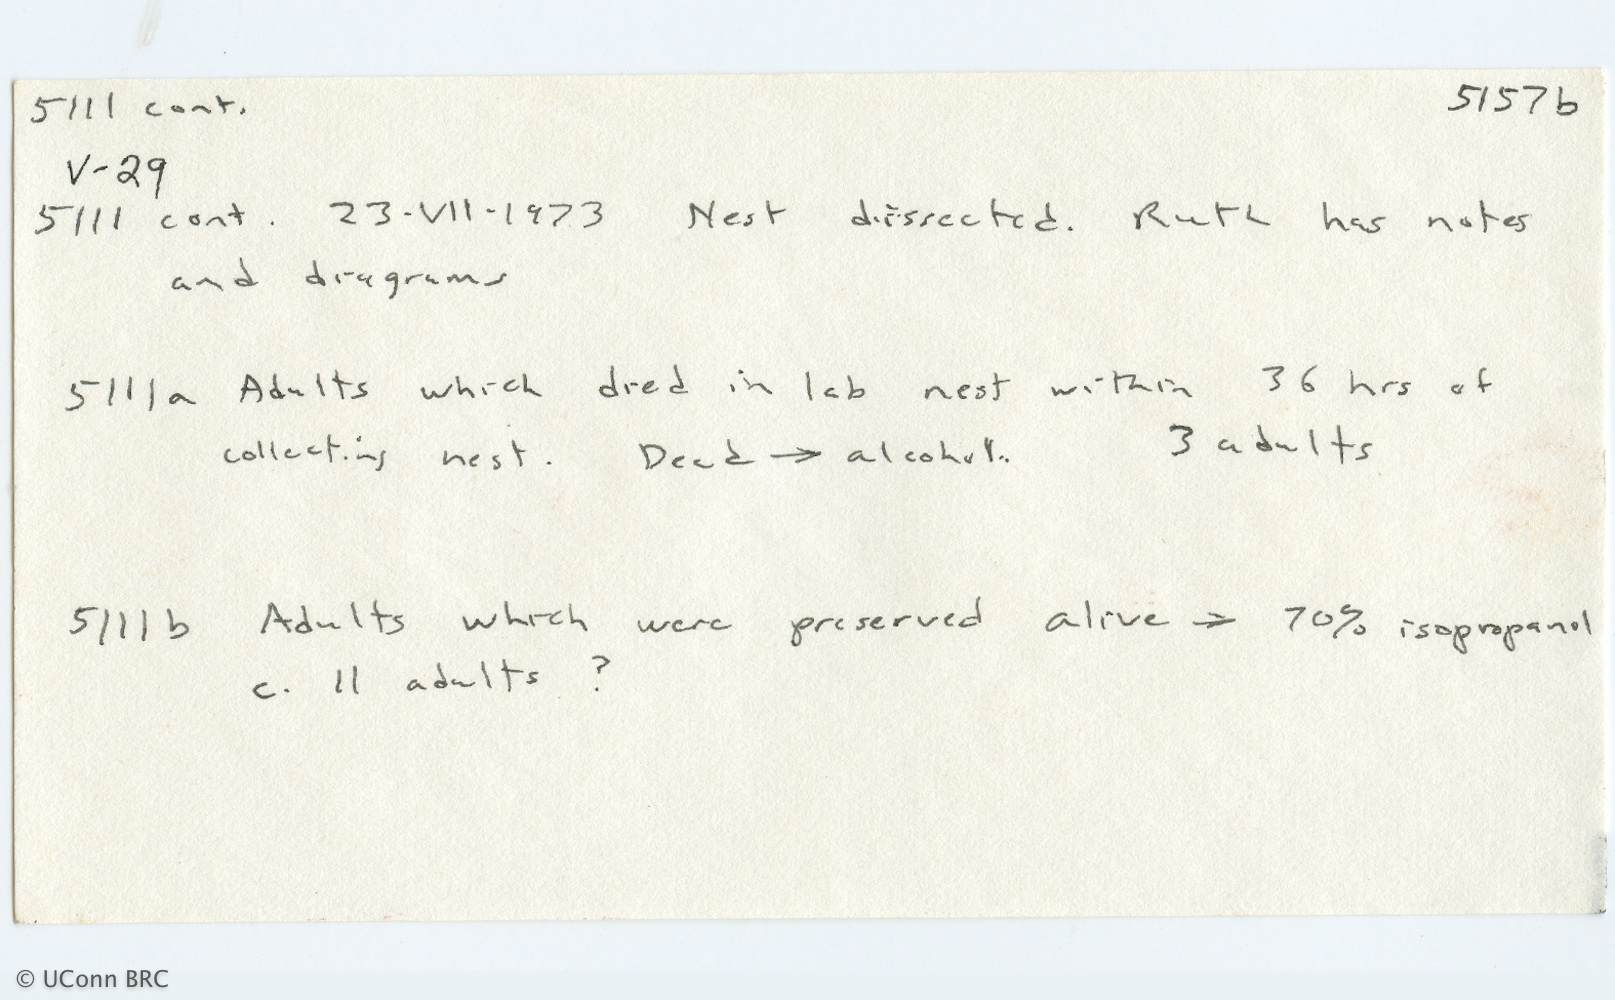 5111 cont. 5157b
V-29
5111 cont. 23-VII-1973 Nest dissected. Ruth has notes
and diagrams
5111a Adults which died in lab nest within 36 hrs of
collecting nest. Dead → alcohol. 3 adults
5111b Adults which were preserved alive → 70% isopropanol
c. 11 adults ?
© UConn BRC